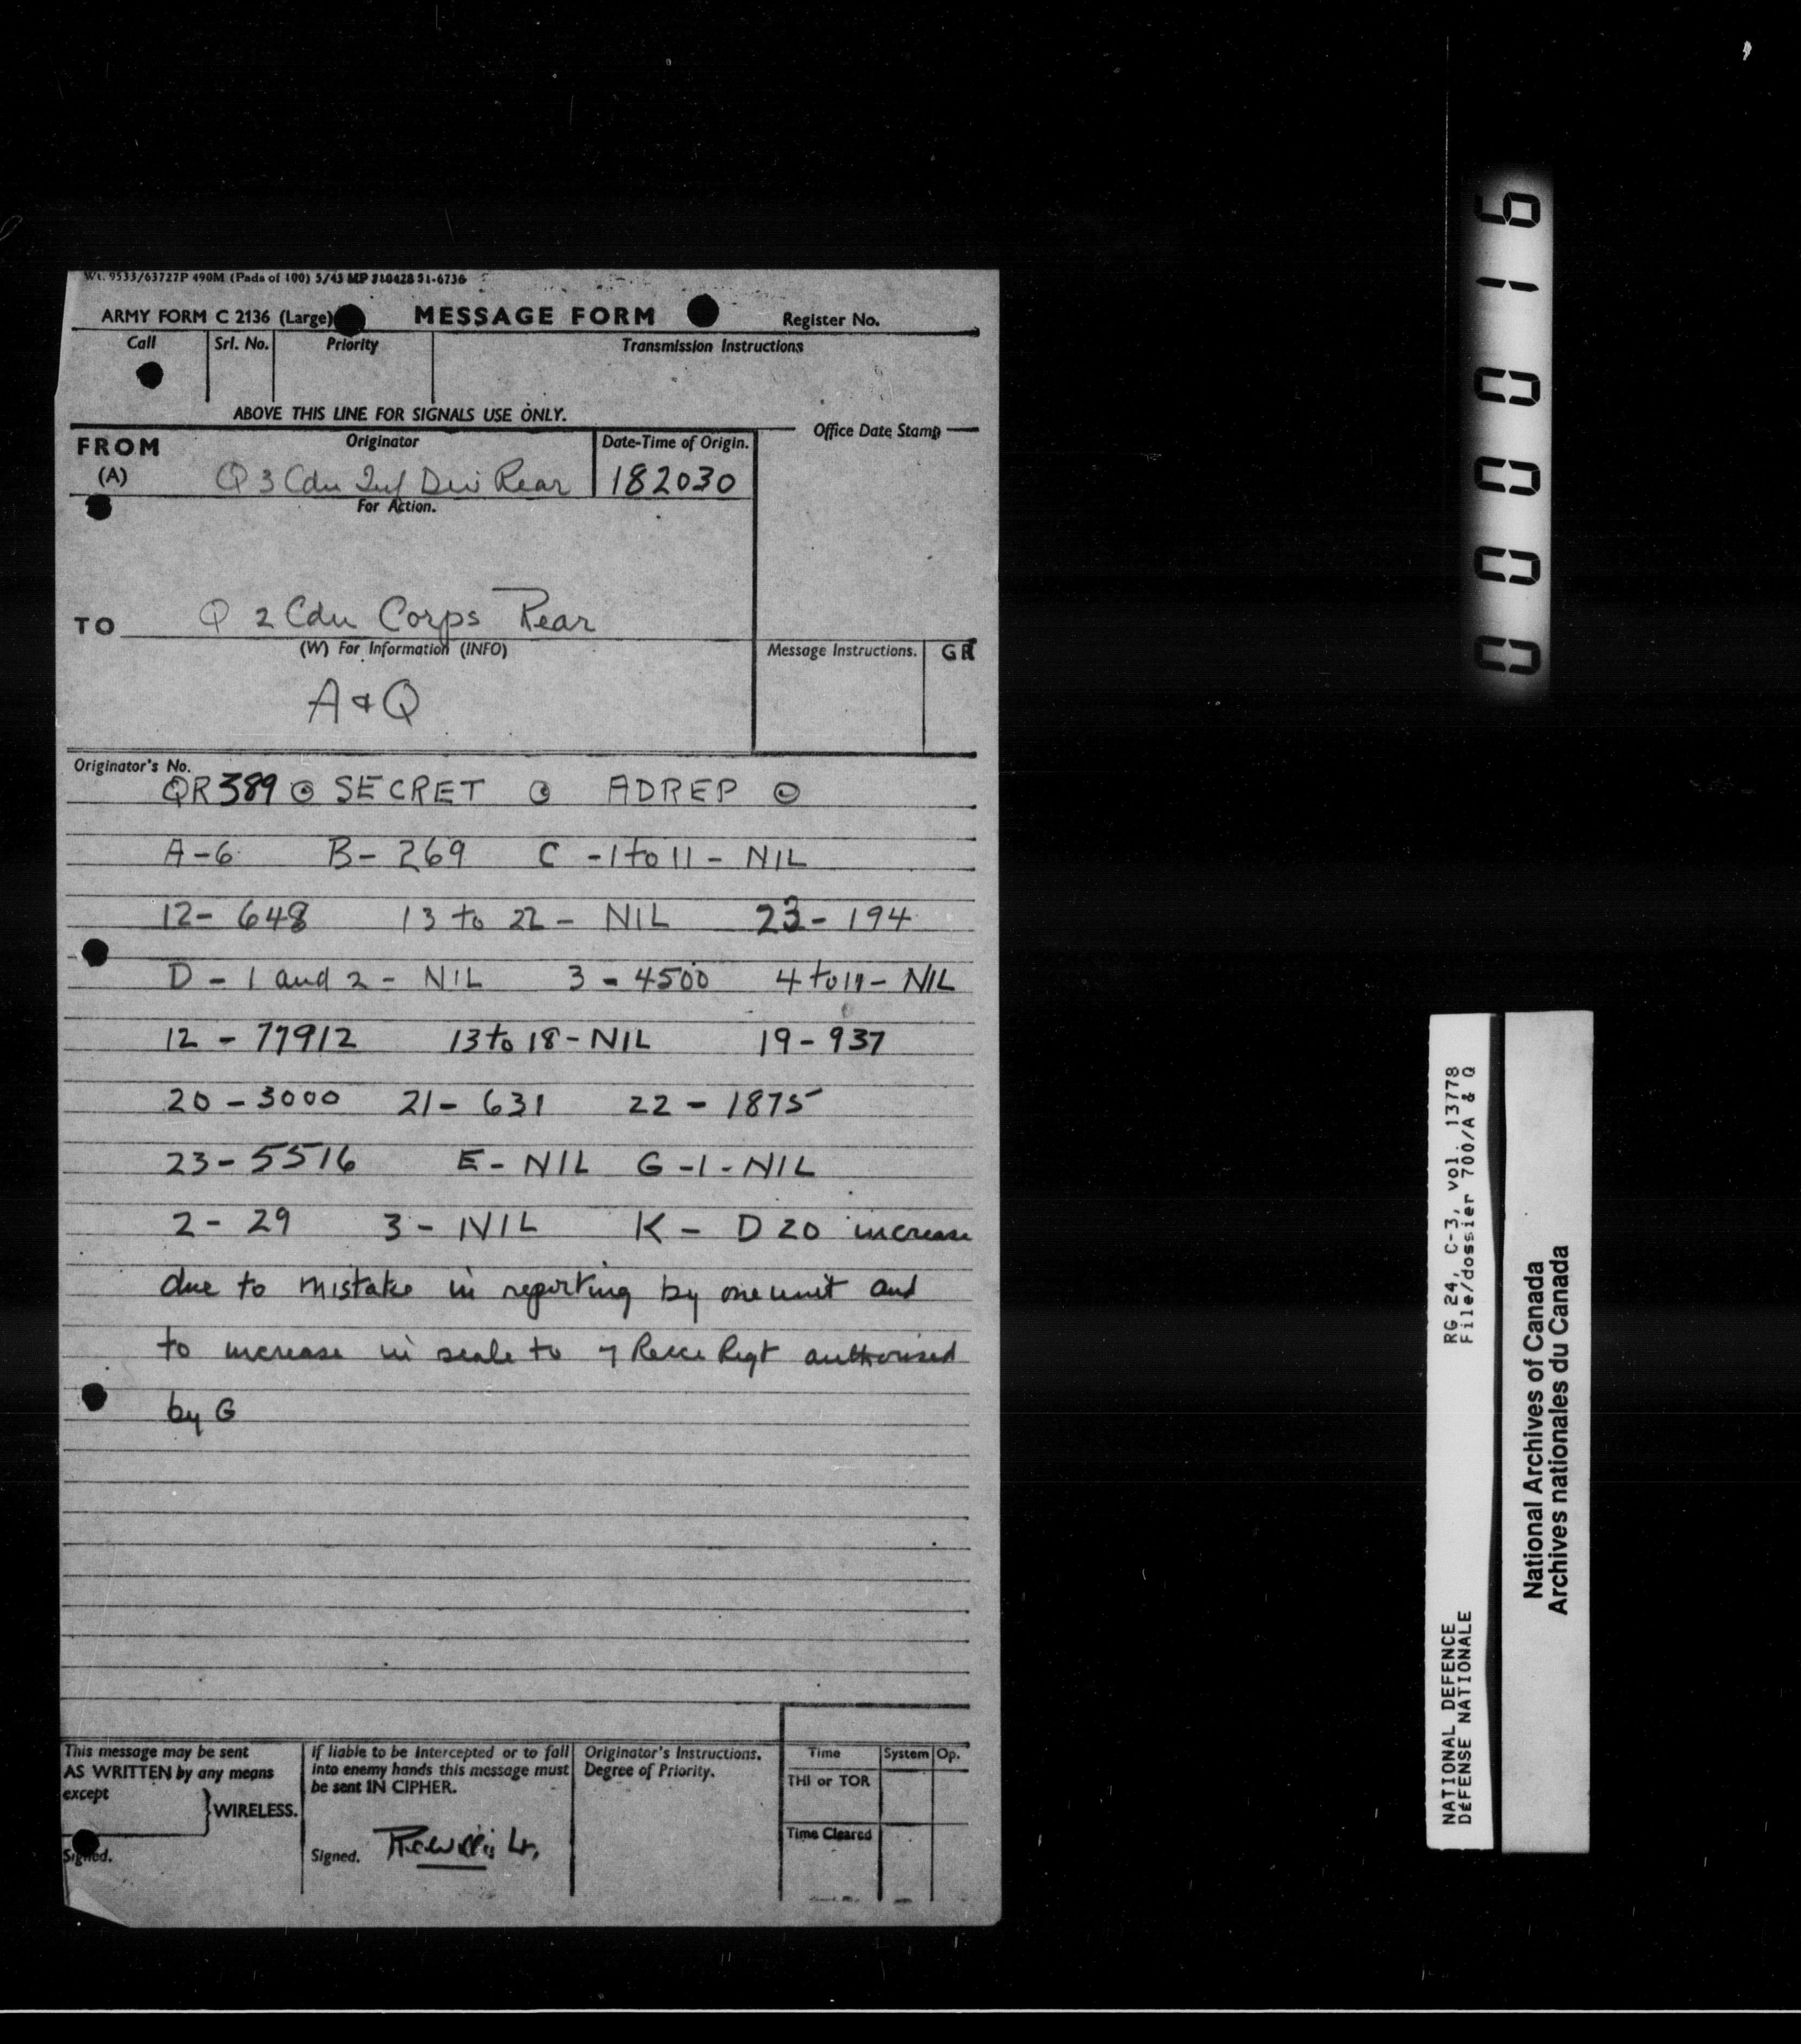 Wt. 9533/63727P 490M (Pads of 100) 5/43 MP 51-6736
ARMY FORM C 2136 (Large)
MESSAGE FORM
Register No.
Call
Srl. No.
Priority
Transmission Instructions
ABOVE THIS LINE FOR SIGNALS USE ONLY.
FROM
(A)
Originator
Q 3 Cdn Inf Div Rear
Date-Time of Origin.
182030
Office Date Stamp
For Action.
TO
Q 2 Cdn Corps Rear
(W) For Information (INFO)
A & Q
Message Instructions.
GR
Originator's No.
QR 389 ⊙ SECRET ⊙ ADREP ⊙
A-6 B- 269 C -1 to 11 - NIL
12- 648 13 to 22 - NIL 23- 194
D - 1 and 2 - NIL 3 - 4500 4 to 11 - NIL
12 - 77912 13 to 18 - NIL 19 - 937
20 - 3000 21 - 631 22 - 1875
23 - 5516 E - NIL G -1- NIL
2 - 29 3 - NIL K - D 20 increase
due to mistake in reporting by one unit and
to increase in scale to 7 Recce Regt authorised
by G
This message may be sent
AS WRITTEN by any means
except
WIRELESS.
Signed.
If liable to be intercepted or to fall
into enemy hands this message must
be sent IN CIPHER.
Signed.
Originator's Instructions.
Degree of Priority.
Time
System
Op.
THI or TOR
Time Cleared
000016
RG 24, C-3, vol. 13778
File/dossier 700/A & Q
NATIONAL DEFENCE
DÉFENSE NATIONALE
National Archives of Canada
Archives nationales du Canada